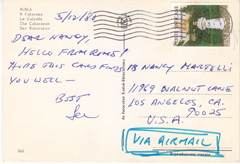 ROMA
Il Colosseo
Le Colysée
The Colosseum
Das Kolosseum
5/12/80
DEAR NANCY,
HELLO FROM ROME!
HOPE THIS CARD FINDS
YOU WELL —
BEST
NANCY MARTELLI
11969 WALNUT LANE
LOS ANGELES, CA.
90025
U.S.A.
VIA AIRMAIL